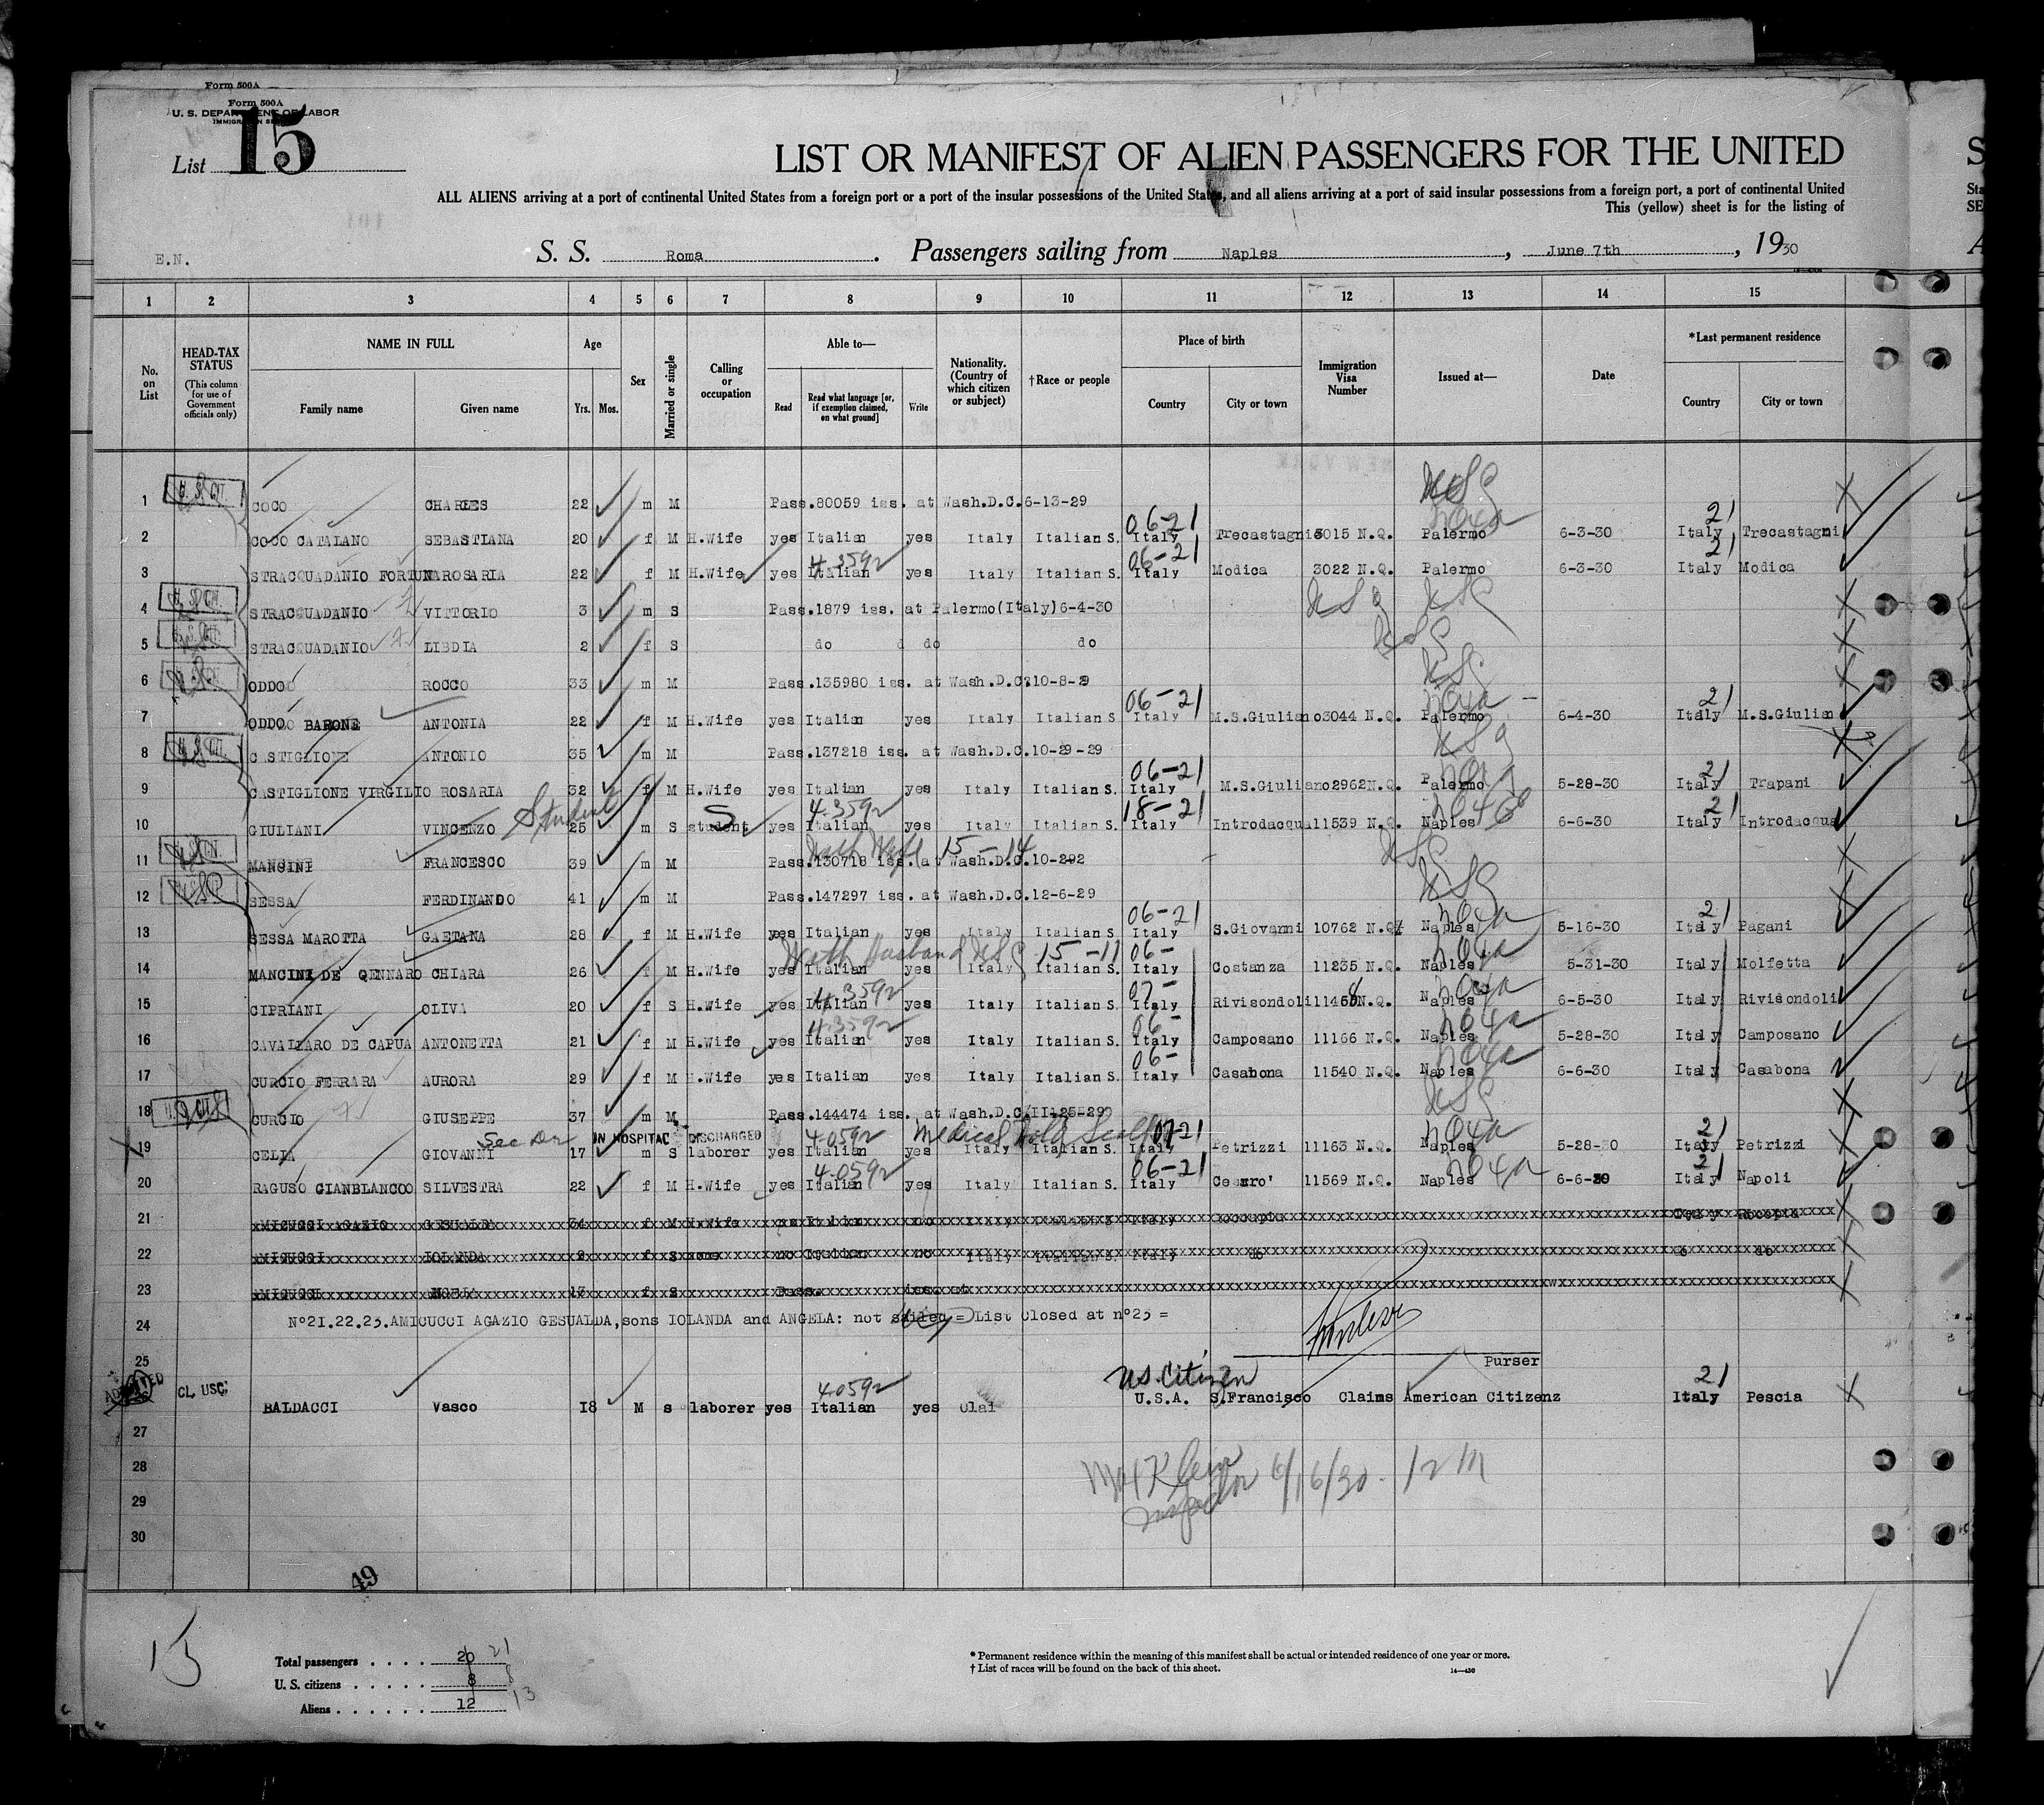 Form 500A
Form 500A
U. S. DEPARTMENT OF LABOR
List 15
LIST OR MANIFEST OF ALIEN PASSENGERS FOR THE UNITED
ALL ALIENS arriving at a port of continental United States from a foreign port or a port of the insular possessions of the United States, and all aliens arriving at a port of said insular possessions from a foreign port, a port of continental United
This (yellow) sheet is for the listing of
E.N.
S. S. Roma. Passengers sailing from Naples, June 7th, 1930
1 2 3 4 5 6 7 8 9 10 11 12 13 14 15
No. on List
HEAD-TAX STATUS
(This column for use of Government officials only)
NAME IN FULL
Family name Given name
Age
Yrs. Mos.
Sex
Married or single
Calling or occupation
Able to—
Read Read what language [or, if exemption claimed, on what ground] Write
Nationality. (Country of which citizen or subject)
†Race or people
Place of birth
Country City or town
Immigration Visa Number
Issued at—
Date
*Last permanent residence
Country City or town
1 COCO CHARLES 22 m M Pass.80059 iss. at Wash.D.C.6-13-29
2 COCO CATALANO SEBASTIANA 20 f M H.Wife yes Italian yes Italy Italian S. 06-21 Italy Trecastagni 3015 N.Q. Palermo 6-3-30 21 Italy Trecastagni
3 STRACQUADANIO FORTUNA ROSARIA 22 f M H.Wife yes Italian yes Italy Italian S. 06-21 Italy Modica 3022 N.Q. Palermo 6-3-30 21 Italy Modica
4 STRACQUADANIO VITTORIO 3 m S Pass.1879 iss. at Palermo(Italy)6-4-30
5 STRACQUADANIO LIBDIA 2 f S do d do do
6 ODDO ROCCO 33 m M Pass.135980 iss. at Wash.D.C.10-8-29
7 ODDO BARONE ANTONIA 22 f M H.Wife yes Italian yes Italy Italian S 06-21 Italy M.S.Giuliano 3044 N.Q. Palermo 6-4-30 21 Italy M.S.Giulian
8 CASTIGLIONE ANTONIO 35 m M Pass.137218 iss. at Wash.D.C.10-29-29
9 CASTIGLIONE VIRGILIO ROSARIA 32 f M H.Wife yes Italian yes Italy Italian S. 06-21 Italy M.S.Giuliano 2962 N.Q. Palermo 5-28-30 21 Italy Trapani
10 GIULIANI VINCENZO Student 25 m S student yes Italian yes Italy Italian S. 18-21 Italy Introdacqua 11539 N.Q. Naples 6-6-30 21 Italy Introdacqua
11 MANCINI FRANCESCO 39 m M with Wife 15-14 Pass.130718 iss. at Wash.D.C.10-292
12 SESSA FERDINANDO 41 m M Pass.147297 iss. at Wash.D.C.12-6-29
13 SESSA MAROTTA GAETANA 28 f M H.Wife yes Italian yes Italy Italian S 06-21 Italy S.Giovanni 10762 N.Q. Naples 5-16-30 21 Italy Pagani
With Husband USC 15-11
14 MANCINI DE GENNARO CHIARA 26 f M H.Wife yes Italian yes Italy Italian S. 06- Italy Costanza 11235 N.Q. Naples 5-31-30 Italy Molfetta
15 CIPRIANI OLIVA 20 f S H.Wife yes Italian yes Italy Italian S. 07- Italy Rivisondoli 11458 N.Q. Naples 6-5-30 Italy Rivisondoli
16 CAVALLARO DE CAPUA ANTONETTA 21 f M H.Wife yes Italian yes Italy Italian S. 06- Italy Camposano 11166 N.Q. Naples 5-28-30 Italy Camposano
17 CURCIO FERRARA AURORA 29 f M H.Wife yes Italian yes Italy Italian S. 06- Italy Casabona 11540 N.Q. Naples 6-6-30 Italy Casabona
18 CURCIO GIUSEPPE 37 m M Pass.144474 iss. at Wash.D.C.II-25-29
IN HOSPITAL DISCHARGED
19 CELIA GIOVANNI 17 m S laborer yes Italian yes Italy Italian S. 07-21 Italy Petrizzi 11163 N.Q. Naples 5-28-30 21 Italy Petrizzi
20 RAGUSO GIANBLANCO SILVESTRA 22 f M H.Wife yes Italian yes Italy Italian S. 06-21 Italy Cesaro' 11569 N.Q. Naples 6-6-30 21 Italy Napoli
21 AMICUCCI AGAZIO GESUALDA 34 f M H.Wife no Italian no Italy
22 AMICUCCI IOLANDA f S none no Italian no Italy Italian S. Italy do do
23 AMICUCCI f S Pass. iss. at
24 N°21.22.23.AMICUCCI AGAZIO GESUALDA,sons IOLANDA and ANGELA: not sailed = List closed at n°25 =
25 Purser
ADMITTED CL. USC. US. Citizen
26 BALDACCI Vasco I8 M s laborer yes Italian yes U.S.A. S.Francisco Claims American Citizenz 21 Italy Pescia
27
28 Klein
29 Inspector 6/16/30
30
49
15
Total passengers . . . . 20 21
U. S. citizens . . . . . 8 8
Aliens . . . . . . 12 13
* Permanent residence within the meaning of this manifest shall be actual or intended residence of one year or more.
† List of races will be found on the back of this sheet.
14—430